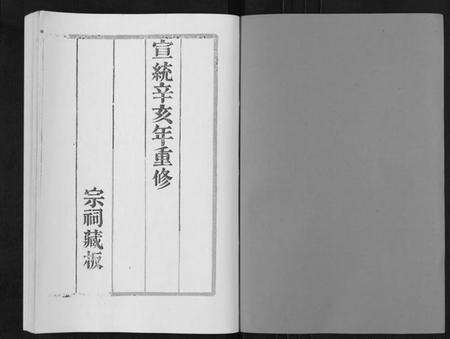 宣統辛亥年重修
宗祠藏板